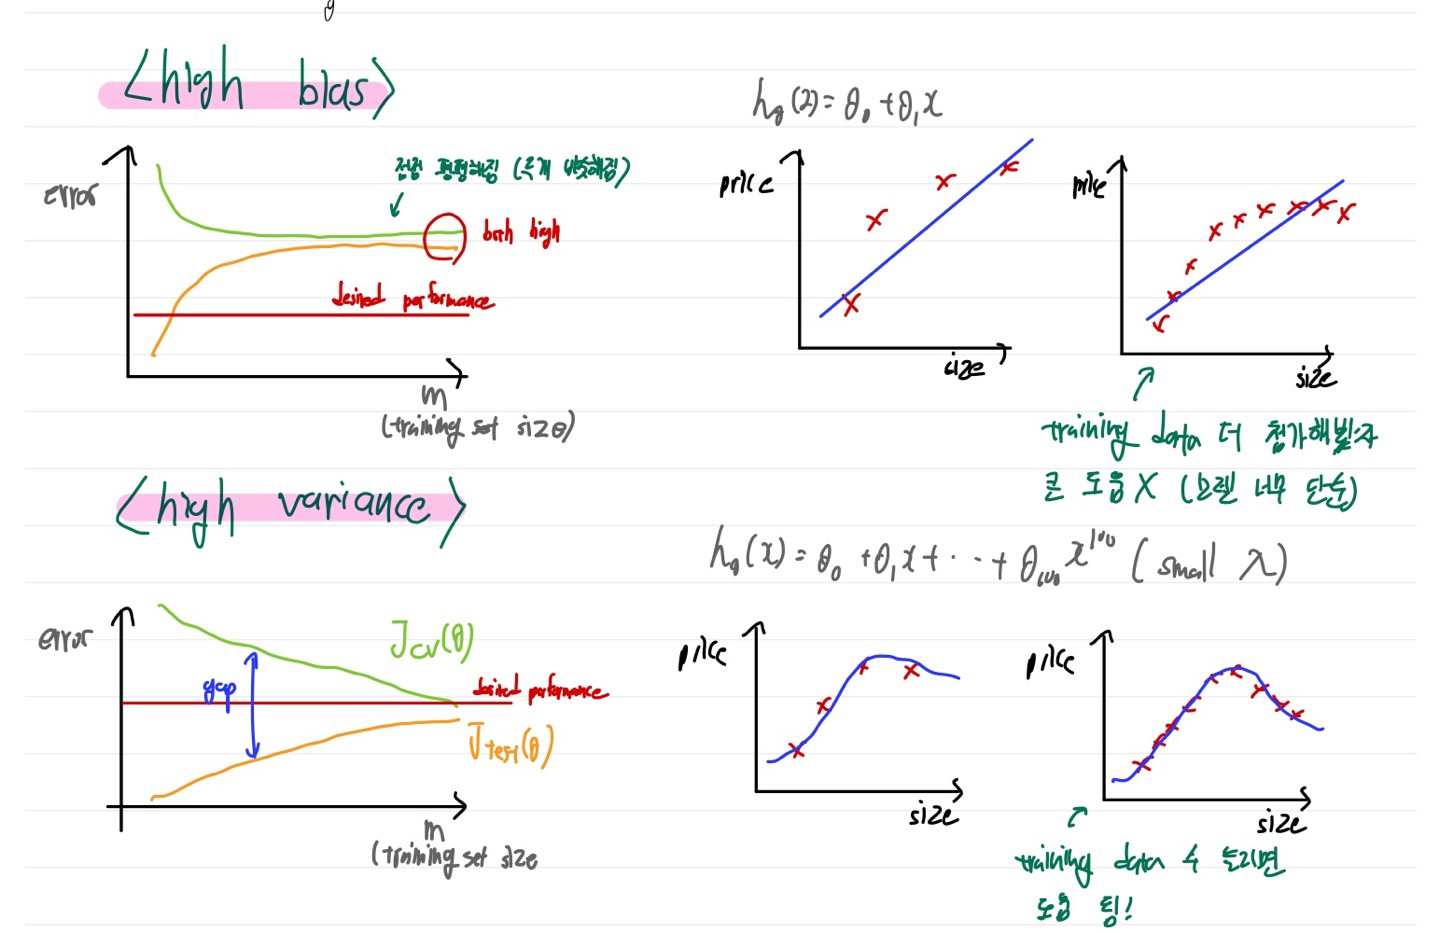 <high bias>
h_θ(2) = θ₀ + θ₁x
error
점점 평평해짐 (두개 비슷해짐)
both high
desired performance
m
(training set size)
price
size
price
size
training data 더 첨가해봤자
큰 도움 X (모델 너무 단순)
<high variance>
h_θ(x) = θ₀ + θ₁x + ⋯ + θ₁₀₀x¹⁰⁰ (small λ)
error
J_cv(θ)
gap
desired performance
J_test(θ)
m
(training set size
price
size
price
size
training data 수 늘리면
도움 됨!